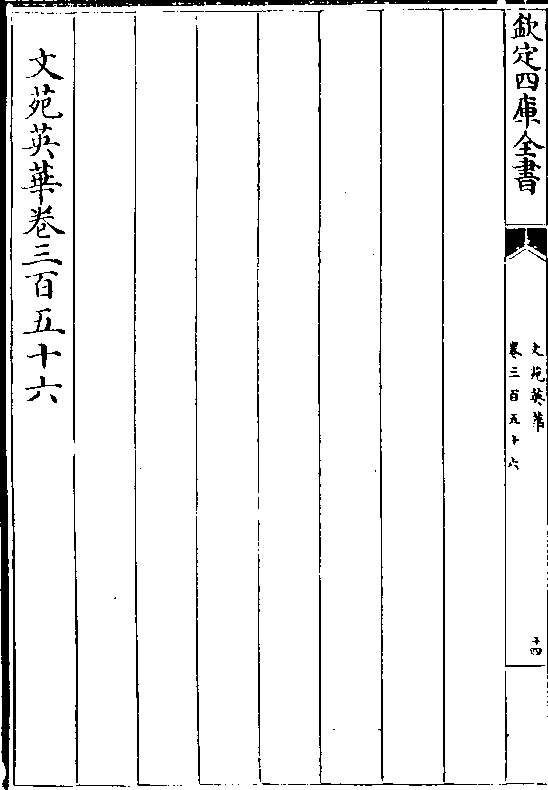 欽定四庫全書
文苑英華
卷三百五十六
十四
文苑英華卷三百五十六